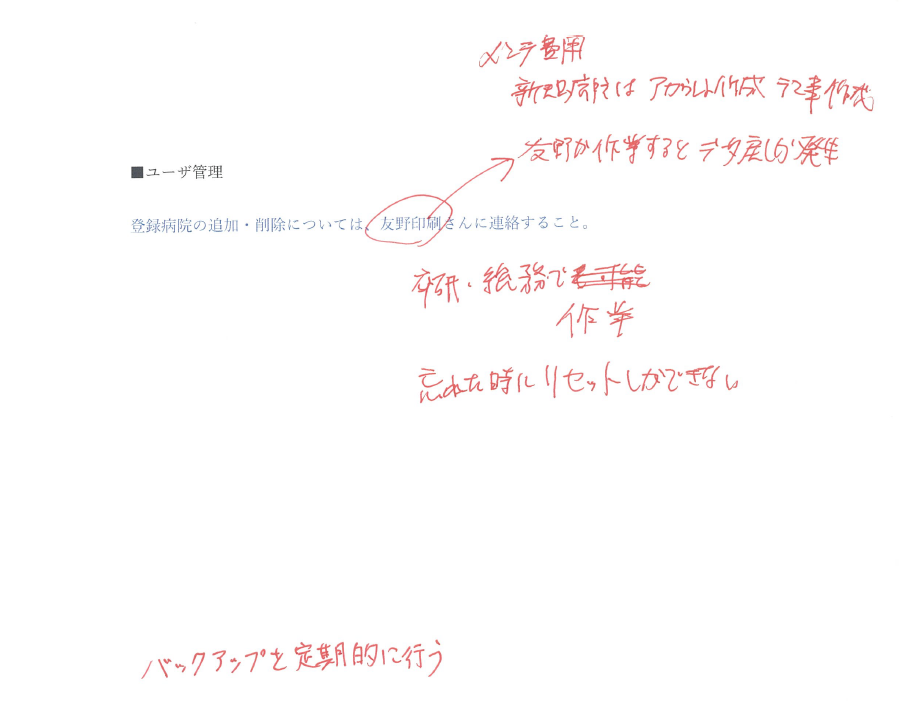 メンテ費用
新規病院は アカウント作成
友野が作業すると データ戻しが発生
■ユーザ管理
登録病院の追加・削除については、友野印刷さんに連絡すること。
卒研・総務で可能
作業
忘れた時に リセットしかできない
バックアップを定期的に行う